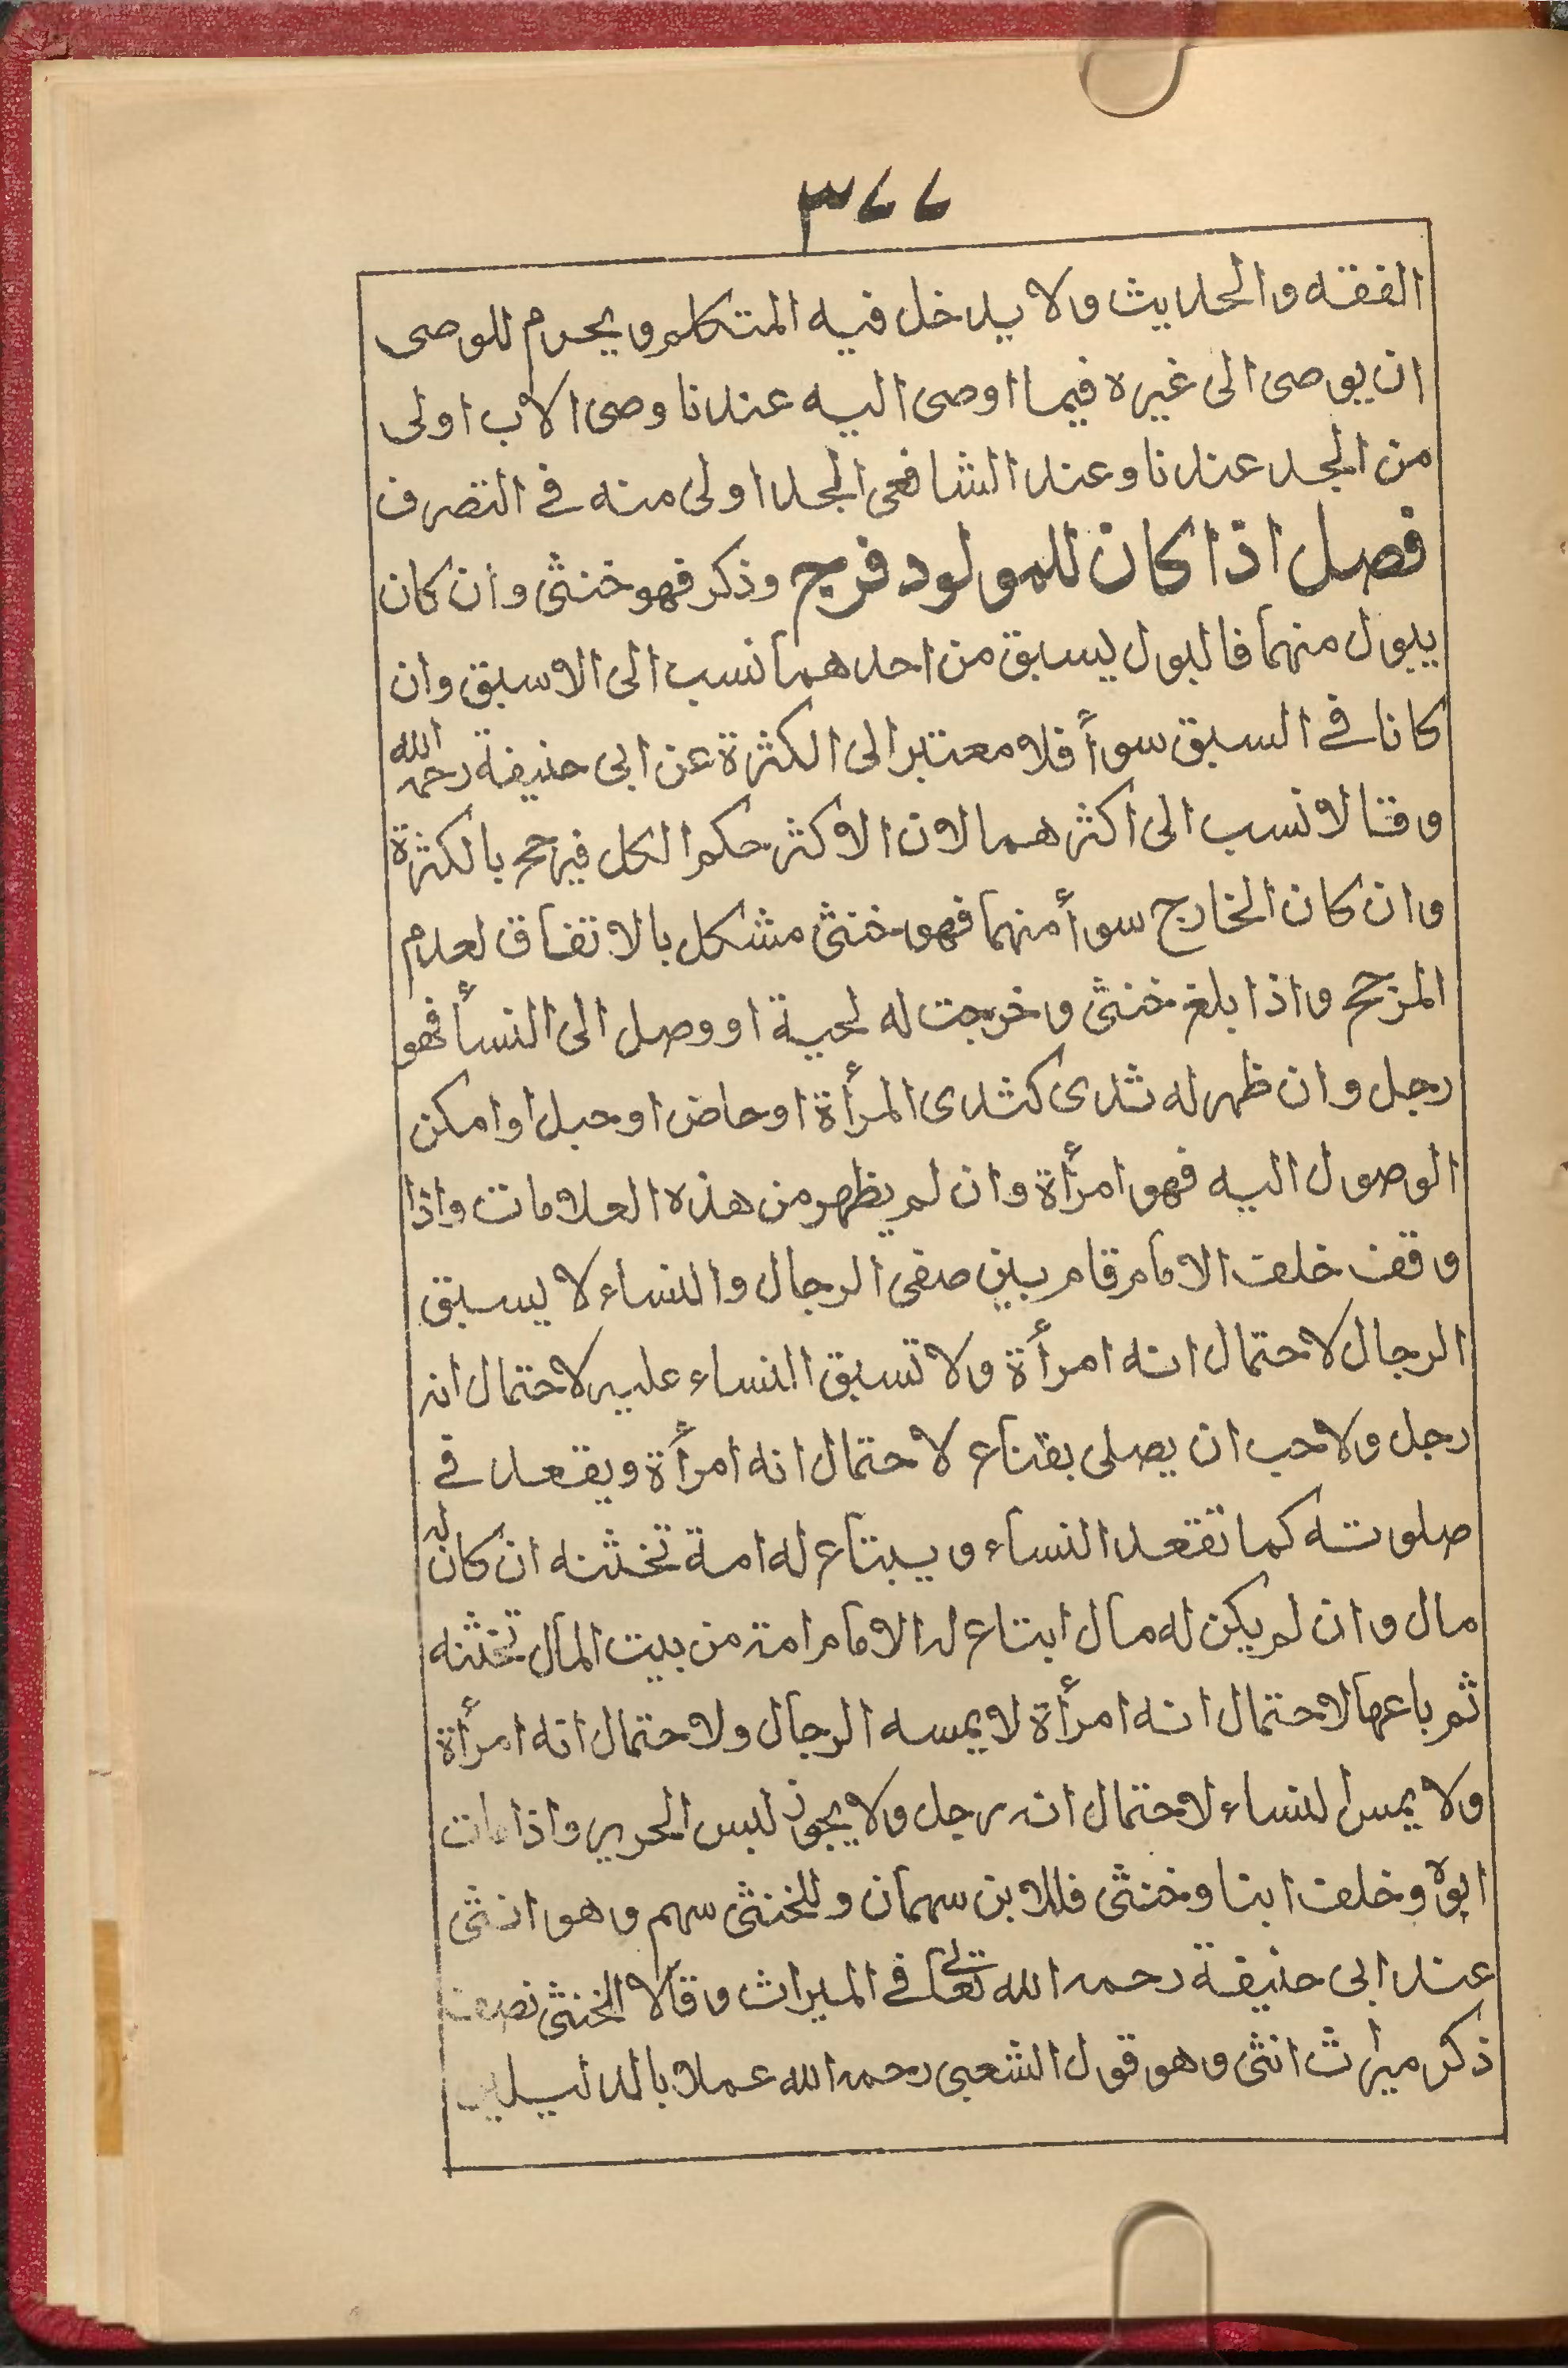 ٣٧٧
الفقه والحديث ولا يدخل فيه المتكلم ويحرم للوصى
ان يوصى الى غيره فيما اوصى اليه عندنا وصى الاب اولى
من الجد عندنا وعند الشافعى الجد اولى منه فى التصرف
فصل اذا كان للمولود فرج وذكر فهو خنثى وان كان
يبول منهما فالبول ليسبق من احدهما نسب الى الاسبق وان
كانا فى السبق سوأ فلا معتبر الى الكثرة عن ابى حنيفة رحمه الله
وقالا نسب الى اكثرهما لان الاكثر حكم الكل فيرجح بالكثرة
وان كان الخارج سوأ منهما فهو خنثى مشكل بالاتفاق لعدم
المرجح واذا بلغ خنثى وخرجت له لحية او وصل الى النسأ فهو
رجل وان ظهر له ثدى كثدى المرأة او حاض او حبل او امكن
الوصول اليه فهو امرأة وان لم يظهر من هذه العلامات واذا
وقف خلف الامام قام بين صفى الرجال والنساء لا يسبق
الرجال لاحتمال انه امرأة ولا تسبق النساء عليه لاحتمال انه
رجل ولاحب ان يصلى بقناع لاحتمال انه امرأة ويقعد فى
صلوته كما تقعد النساء ويبتاع له امة تختنه ان كان له
مال وان لم يكن له مال ابتاع له الامام امة من بيت المال تختنه
ثم باعها لاحتمال انه امرأة لا يمسه الرجال ولاحتمال انه امرأة
ولا يمس النساء لاحتمال انه رجل ولا يجوز لبس الحرير واذا مات
ابوه وخلف ابنا وخنثى فللابن سهمان وللخنثى سهم وهو انثى
عند ابى حنيفة رحمه الله تعالى فى الميراث وقالا الخنثى نصف
ذكر ميراث انثى وهو قول الشعبى رحمه الله عملا بالدليلين